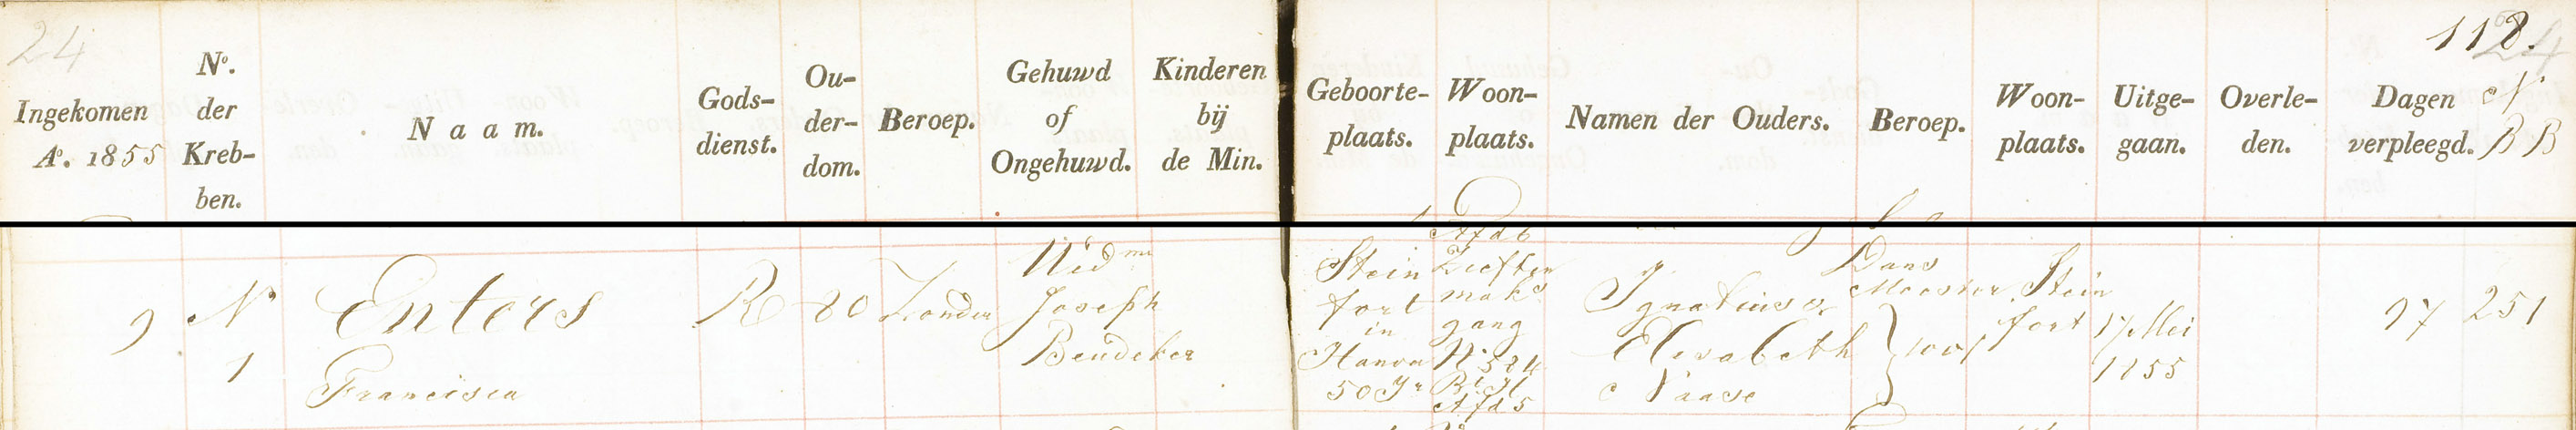 24
118.
24
Ingekomen
A°. 1855
N°.
der
Kreb-
ben.
N a a m.
Gods-
dienst.
Ou-
der-
dom.
Beroep.
Gehuwd
of
Ongehuwd.
Kinderen
bij
de Min.
Geboorte-
plaats.
Woon-
plaats.
Namen der Ouders.
Beroep.
Woon-
plaats.
Uitge-
gaan.
Overle-
den.
Dagen
verpleegd.
N
BB
9
N
1
Enters
Francisca
R
80
Zonder
Joseph
Beudeker
Stein
fort
in
Hanov
50 Jr
gang
N° 584
Afd 5
Ignatius &
Elesabeth
Vaase
Dans
Meester
Stein
fort
17 Mei
1855
97
251